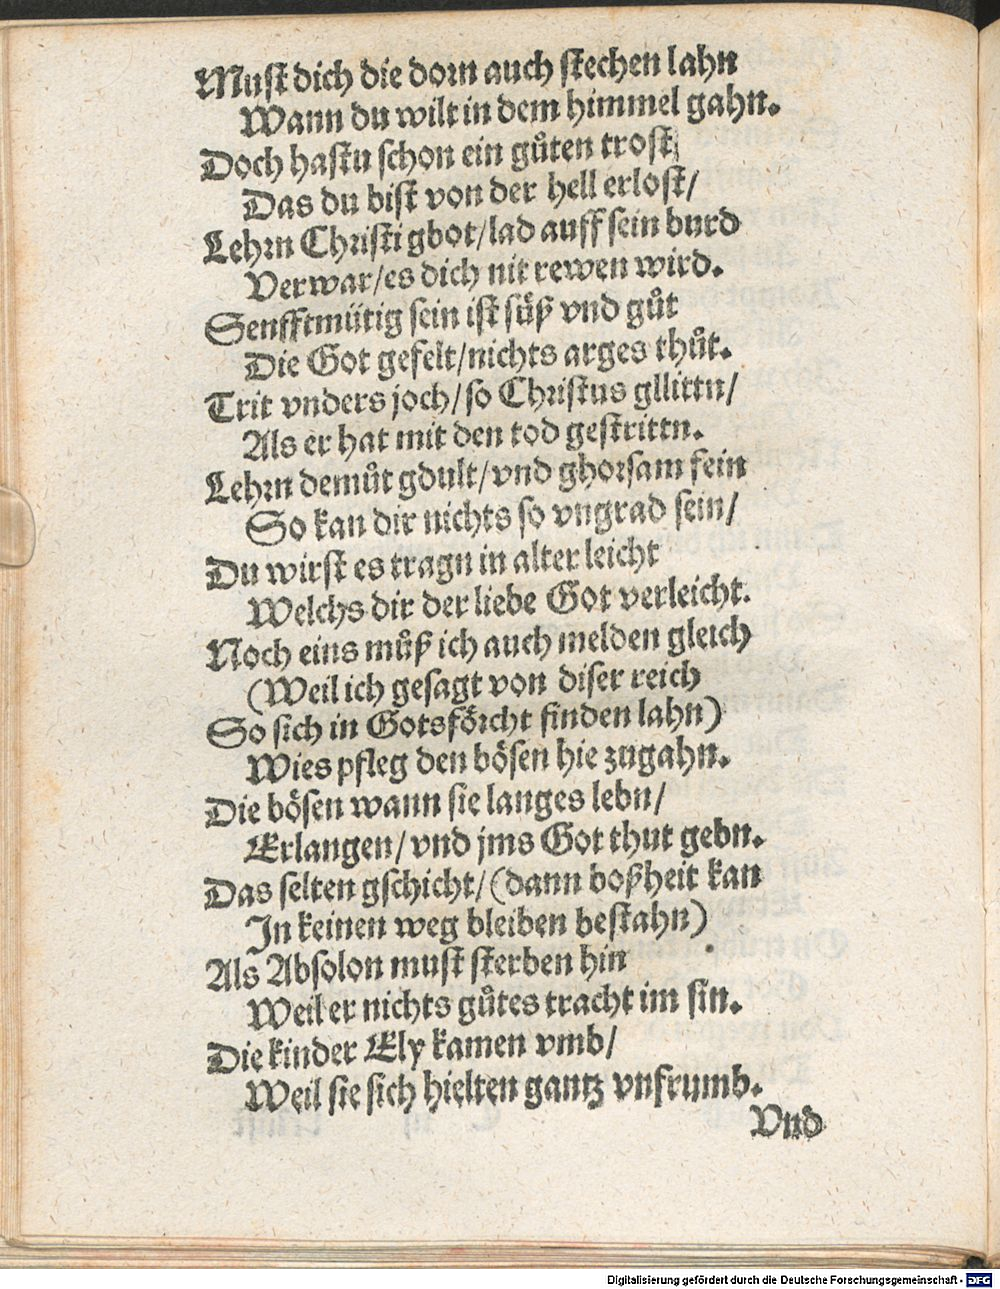 Must dich die dorn auch stechen lahn
Wann du wilt in dem himmel gahn.
Doch hastu schon ein gůten trost
Das du bist von der hell erlost/
Lehrn Christi gbot/lad auff sein burd
Verwar/es dich nit rewen wird.
Senfftmütig sein ist süß vnd gůt
Die Got gefelt/nichts arges thůt.
Trit vnders joch/so Christus gllittn/
Als er hat mit den tod gestrittn.
Lehrn demůt gdult/vnd ghorsam fein
So kan dir nichts so vngrad sein/
Du wirst es tragn in alter leicht
Welchs dir der liebe Got verleicht.
Noch eins můß ich auch melden gleich
(Weil ich gesagt von diser reich
So sich in Gotsförcht finden lahn)
Wies pfleg den bösen hie zugahn.
Die bösen wann sie langes lebn/
Erlangen/vnd jms Got thut gebn.
Das selten gschicht/(dann boßheit kan
In keinen weg bleiben bestahn)
Als Absolon must sterben hin
Weil er nichts gůtes tracht im sin.
Die kinder Ely kamen vmb/
Weil sie sich hielten gantz vnfrumb.
Vnd
Digitalisierung gefördert durch die Deutsche Forschungsgemeinschaft - DFG